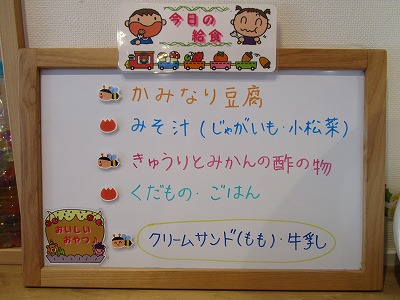 今日の
給食
かみなり豆腐
みそ汁 (じゃがいも・小松菜)
きゅうりとみかんの酢の物
くだもの・ごはん
おいしい
おやつ♪
クリームサンド(もも)・牛乳し